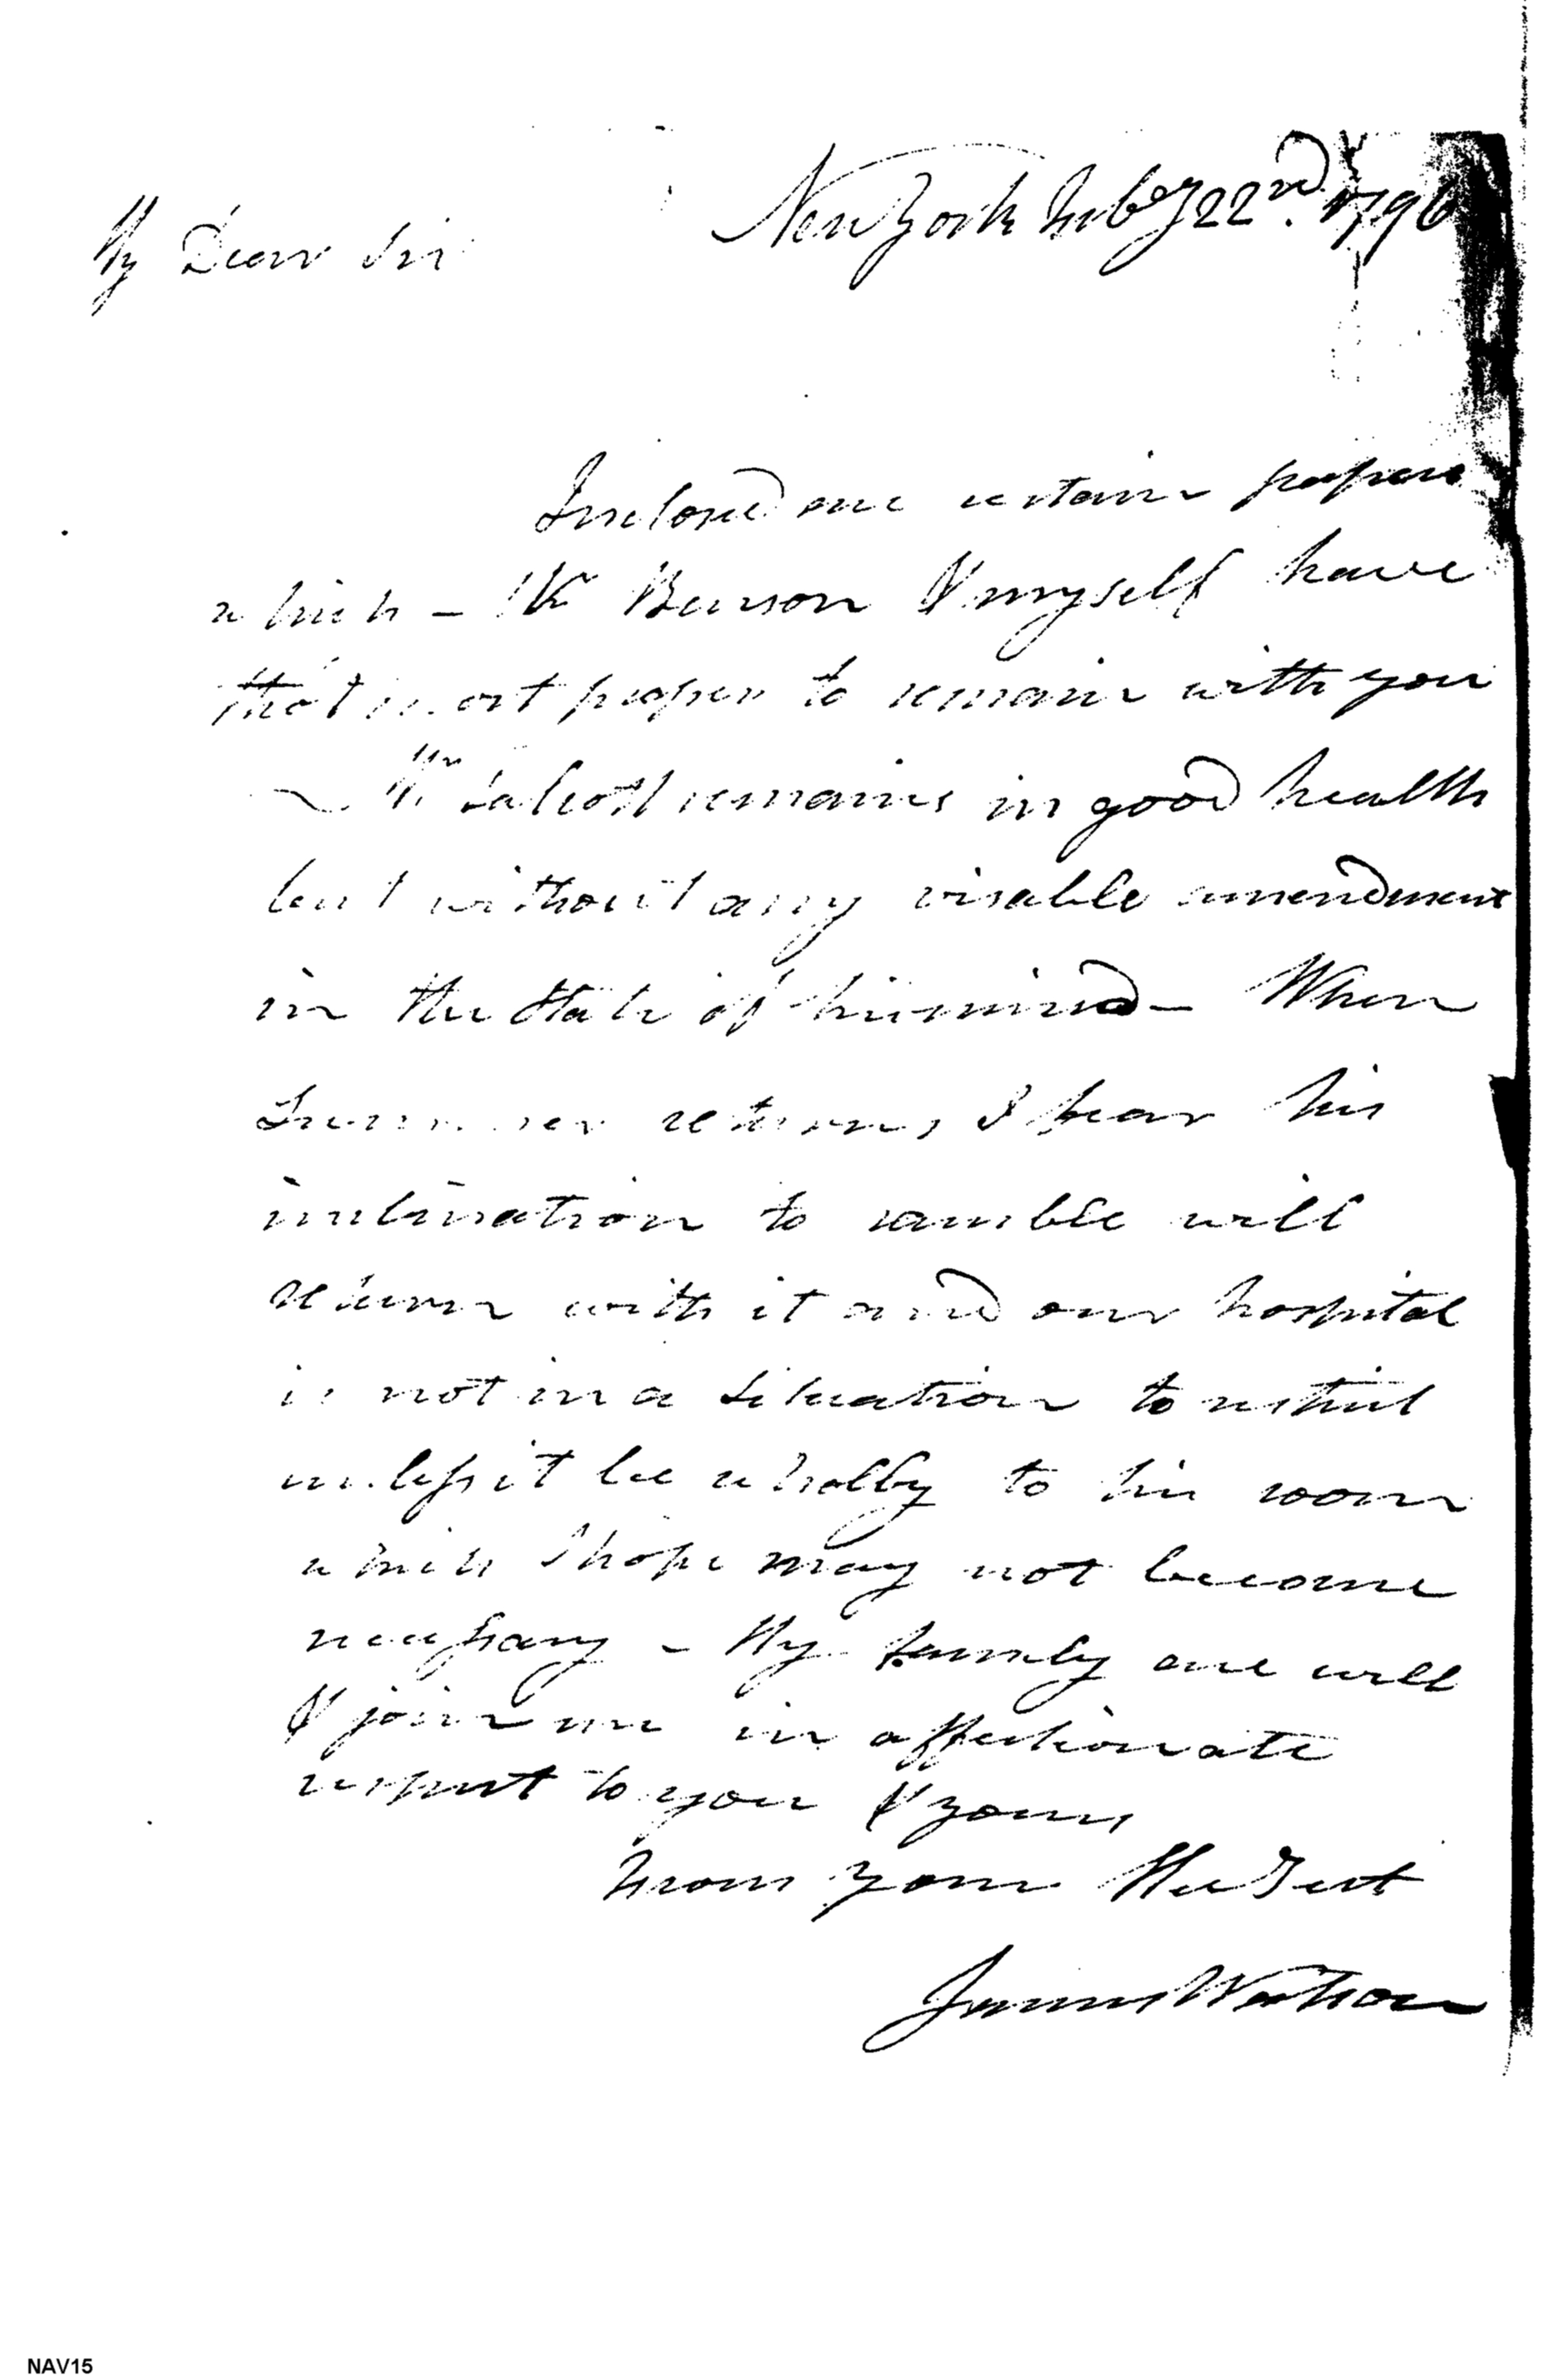 New York Feby 22nd. 1796
My Dear Sir
Inclosed are certain papers
which – Mr Benson & myself have
that most proper to remain with you
Mr Talcott remains in good health
but without any visable amendment
in the State of his mind – When
Summer returns, I fear his
inclination to ramble will
return with it and our hospital
is not in a Situation to restrict
unless it be wholly to his room
which I hope may not become
necessary – My family are well
& join me in affectionate
respect to you & yours
from your Ob Sert
James Watson
NAV15